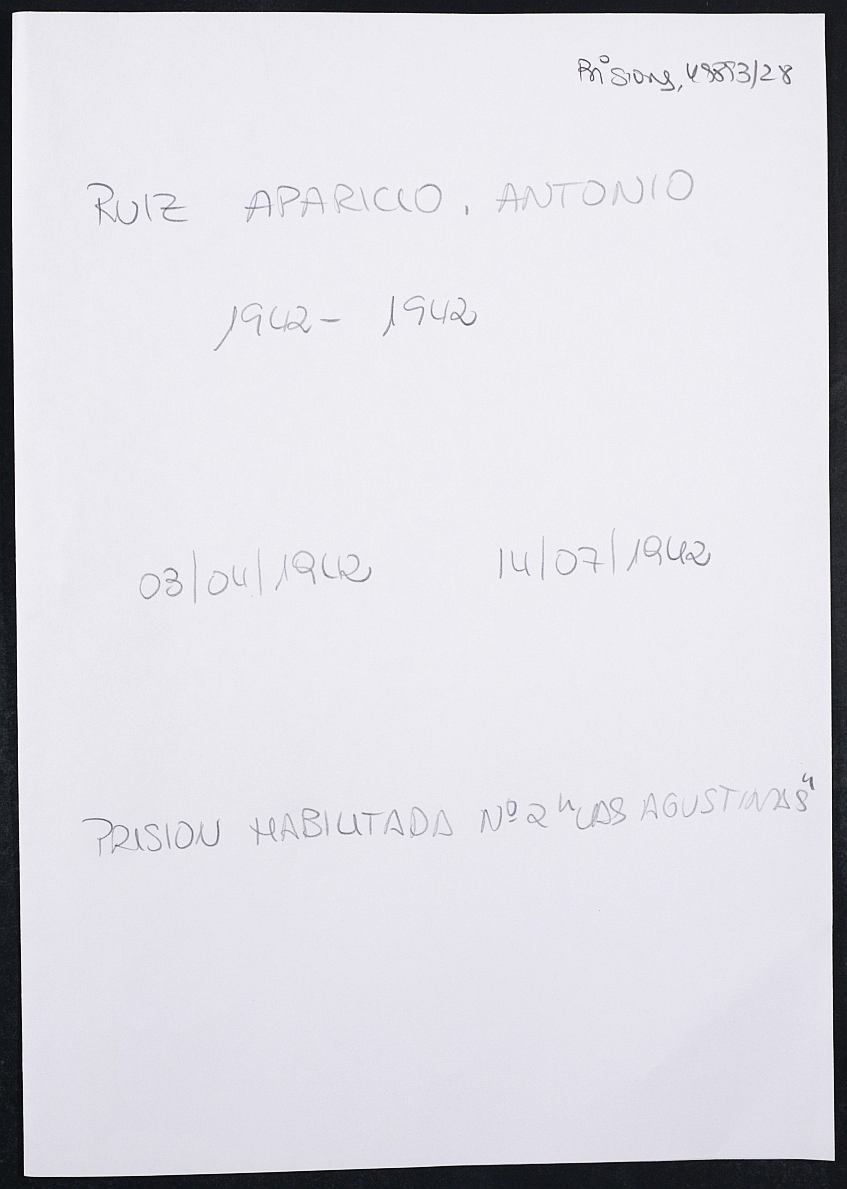 Prisiones, 49893/28
RUIZ APARICIO, ANTONIO
1942 - 1942
03/04/1942 14/07/1942
PRISION HABILITADA Nº 2 "LAS AGUSTINAS"